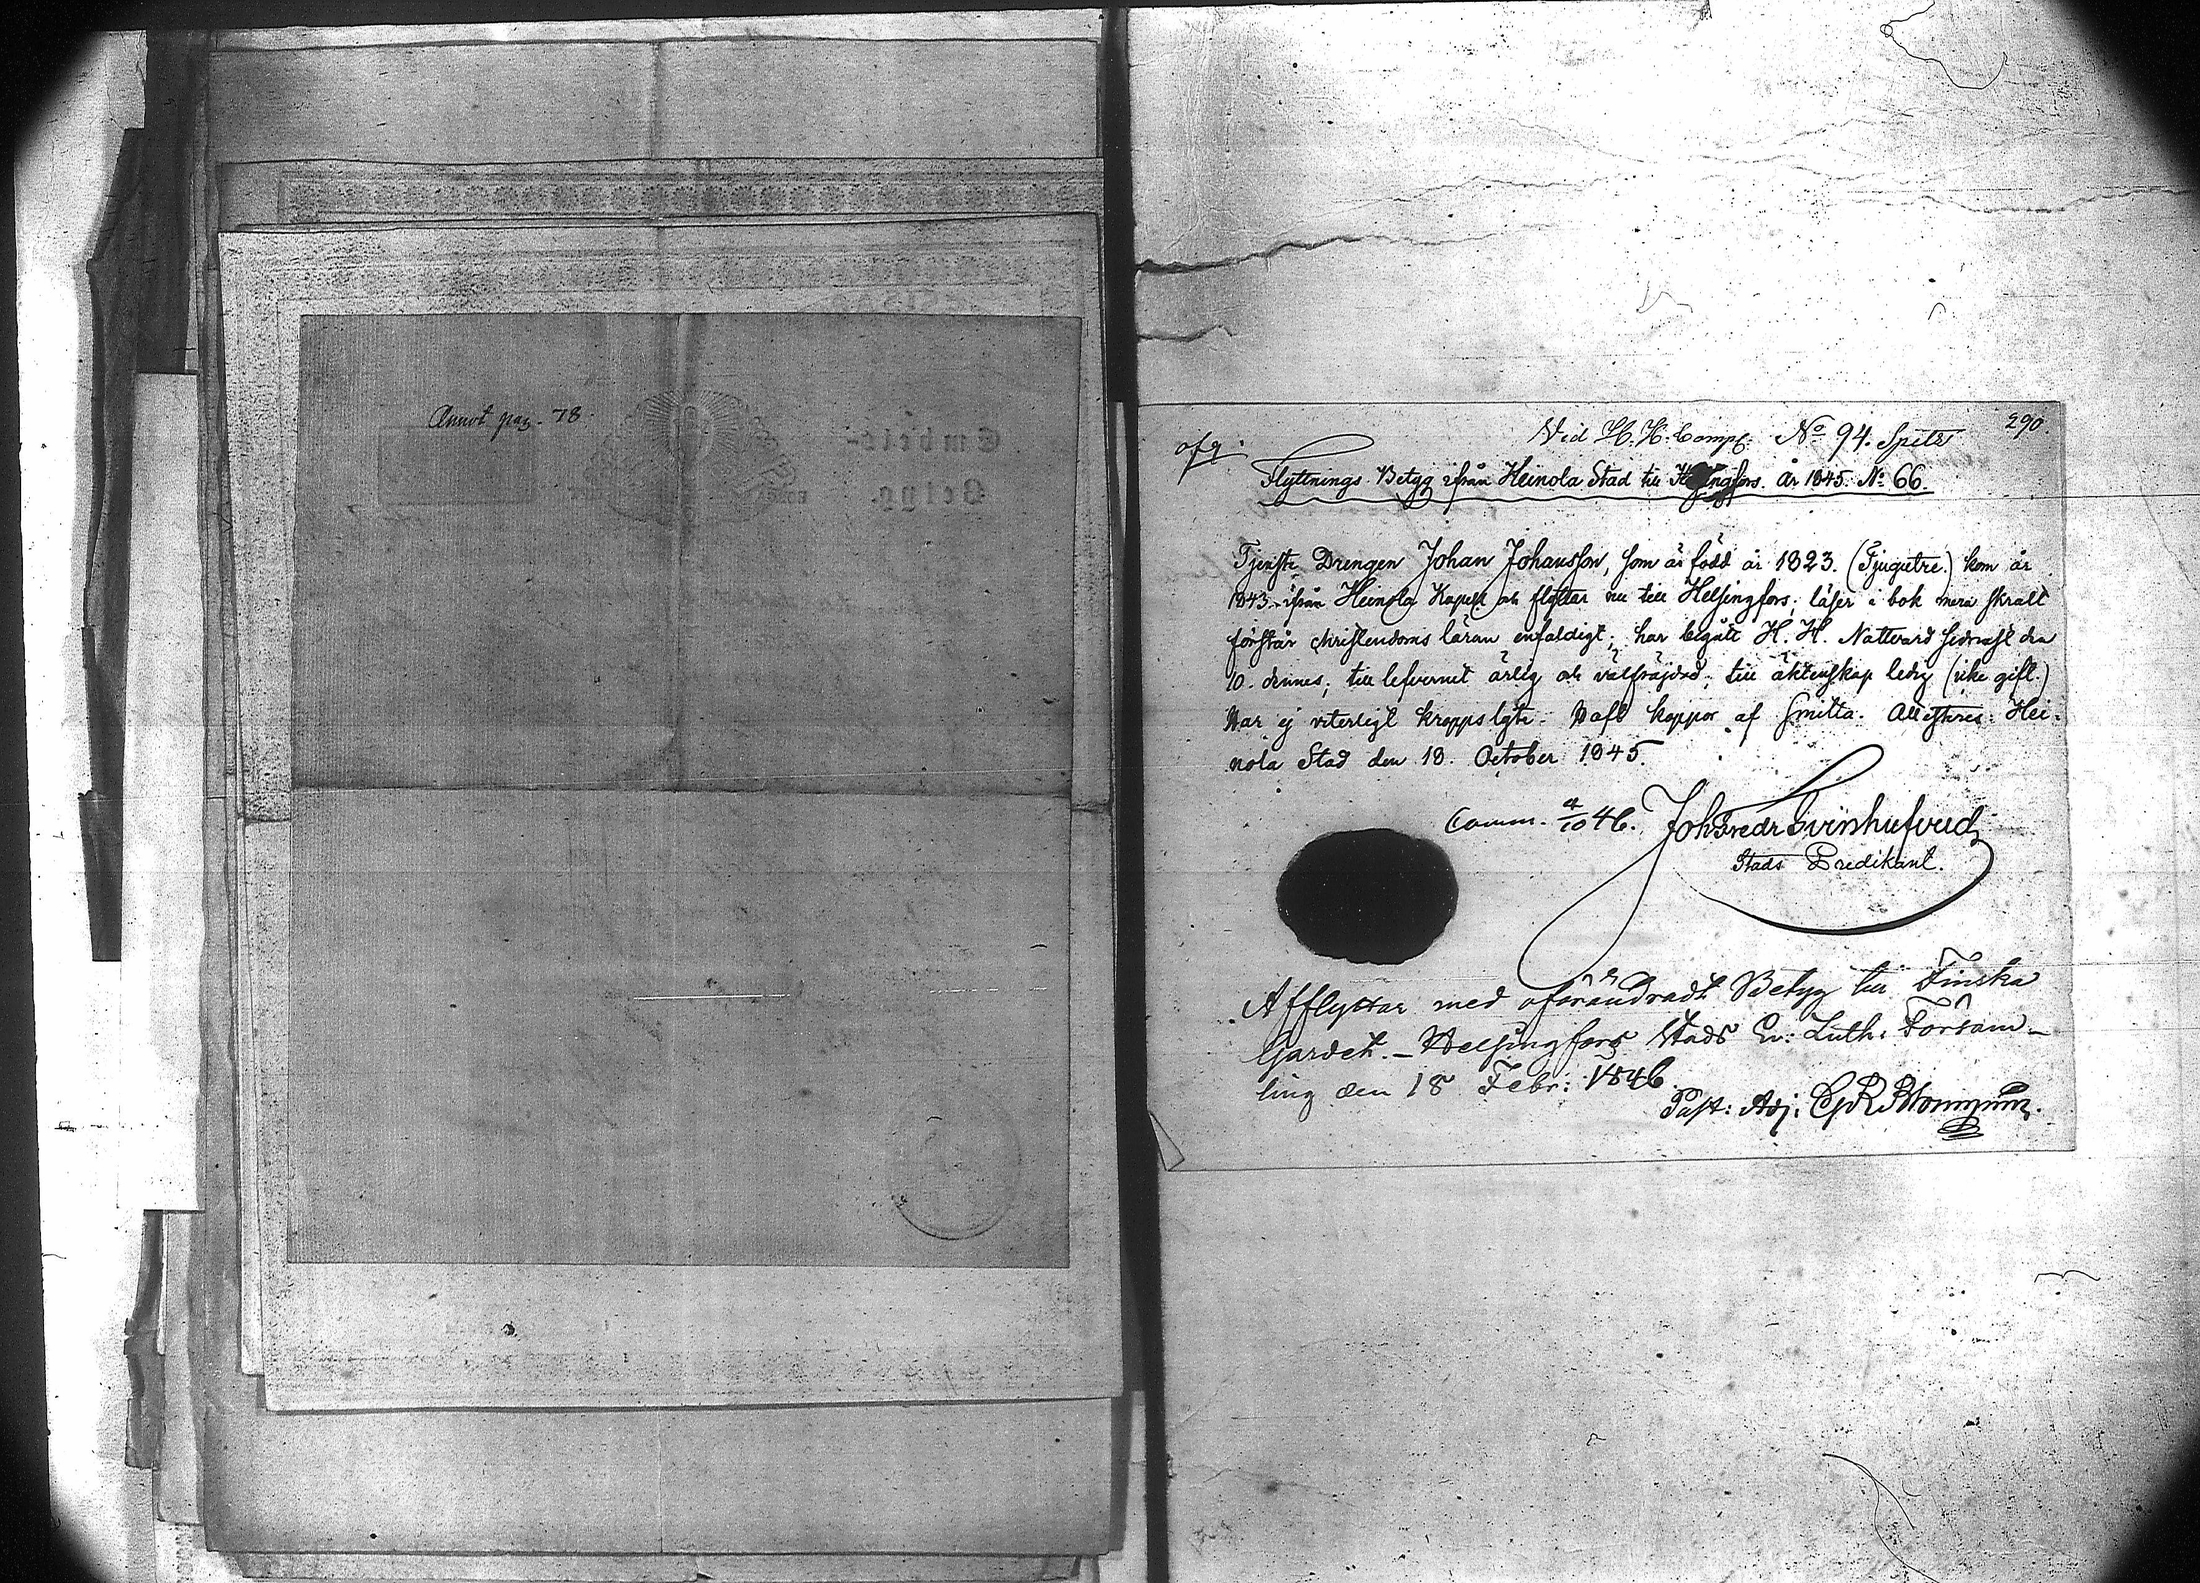 Annot pag. 78
290.
Vid H. H. Comp. No 94. Spitz
Flyttnings Betyg ifrån Heinola Stad till Helsingfors. År 1845. No 66.
Tjenste Drengen Johan Johansson, som är född år 1823. (Tjugutre.) kom år
1843 ifrån Heinola Kapell och flyttar nu till Helsingfors; läser i bok mera skralt
förstår christendoms läran enfaldigt; har begått H. H. Nattvard sednast den
10. dennes; till lefvernet ärlig och välfräjdad; till äktenskap ledig (icke gift.)
Har ej veterligt kroppslyte. Haft koppor af smitta. Attesteres: Hei-
nola Stad den 18. October 1845.
Comm. 4/10 46. Joh Fredr Svinhufvud
Stads Predikant.
Afflyttar med oförändradt Betyg till Finska
Gardet. - Helsingfors Stads Ev: Luth: Försam-
ling den 18 Febr: 1846
Past: Adj: